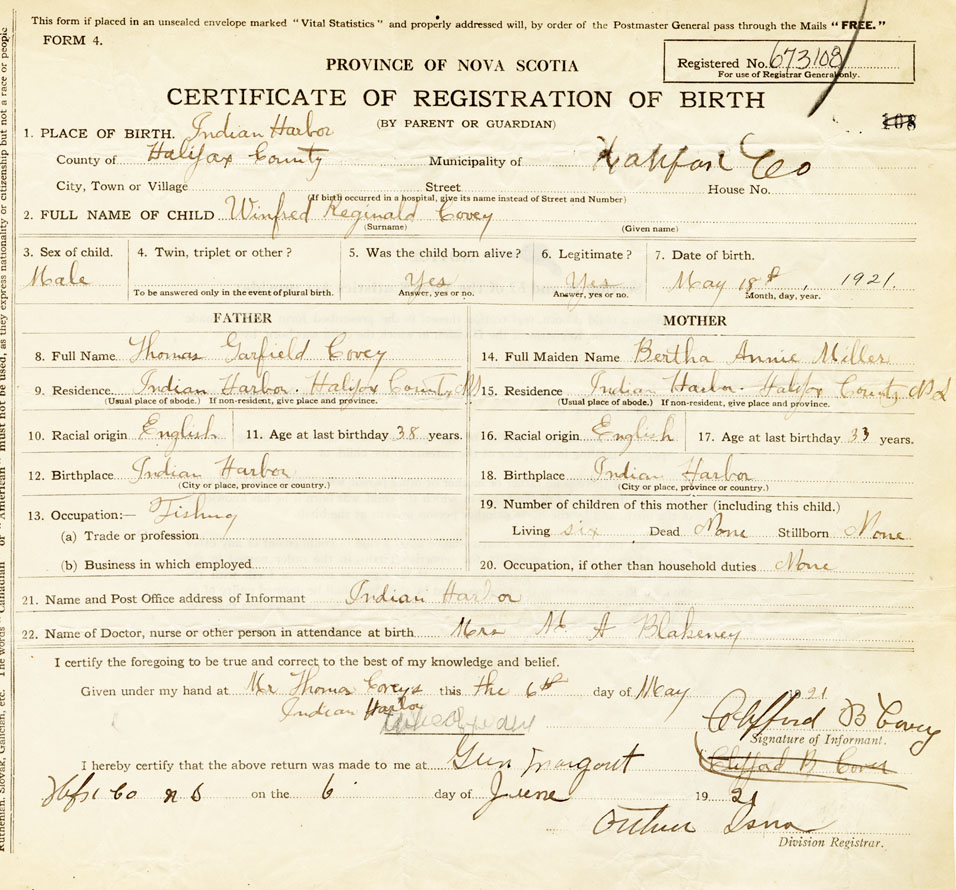 This form if placed in an unsealed envelope marked "Vital Statistics" and properly addressed will, by order of the Postmaster General pass through the Mails "FREE."
FORM 4.
Registered No. 673108
For use of Registrar General only.
PROVINCE OF NOVA SCOTIA
CERTIFICATE OF REGISTRATION OF BIRTH
(BY PARENT OR GUARDIAN)
108
1. PLACE OF BIRTH. Indian Harbor
County of Halifax County Municipality of Halifax Co
City, Town or Village Street House No.
(If birth occurred in a hospital, give its name instead of Street and Number)
2. FULL NAME OF CHILD Winfred Reginald Covey
(Surname) (Given name)
3. Sex of child. 4. Twin, triplet or other? 5. Was the child born alive? 6. Legitimate? 7. Date of birth.
Male Yes Yes May 18th, 1921.
To be answered only in the event of plural birth. Answer, yes or no. Answer, yes or no. Month, day, year.
FATHER MOTHER
8. Full Name Thomas Garfield Covey 14. Full Maiden Name Bertha Annie Miller
9. Residence Indian Harbor. Halifax County, NS 15. Residence Indian Harbor. Halifax County NS
(Usual place of abode.) If non-resident, give place and province. (Usual place of abode.) If non-resident, give place and province.
10. Racial origin English 11. Age at last birthday 38 years. 16. Racial origin English 17. Age at last birthday 33 years.
12. Birthplace Indian Harbor 18. Birthplace Indian Harbor
(City or place, province or country.) (City or place, province or country.)
13. Occupation:— Fishing 19. Number of children of this mother (including this child.)
(a) Trade or profession Living six Dead None Stillborn None
(b) Business in which employed 20. Occupation, if other than household duties None
21. Name and Post Office address of Informant Indian Harbor
22. Name of Doctor, nurse or other person in attendance at birth Mrs M. A Blakeney
I certify the foregoing to be true and correct to the best of my knowledge and belief.
Given under my hand at Mr Thomas Coveys this the 6th day of May 1921
Indian Harbor
Clifford B Covey
Signature of Informant.
Clifford B Covey
I hereby certify that the above return was made to me at
Hfx Co N S on the 6 day of June 1921
Division Registrar.